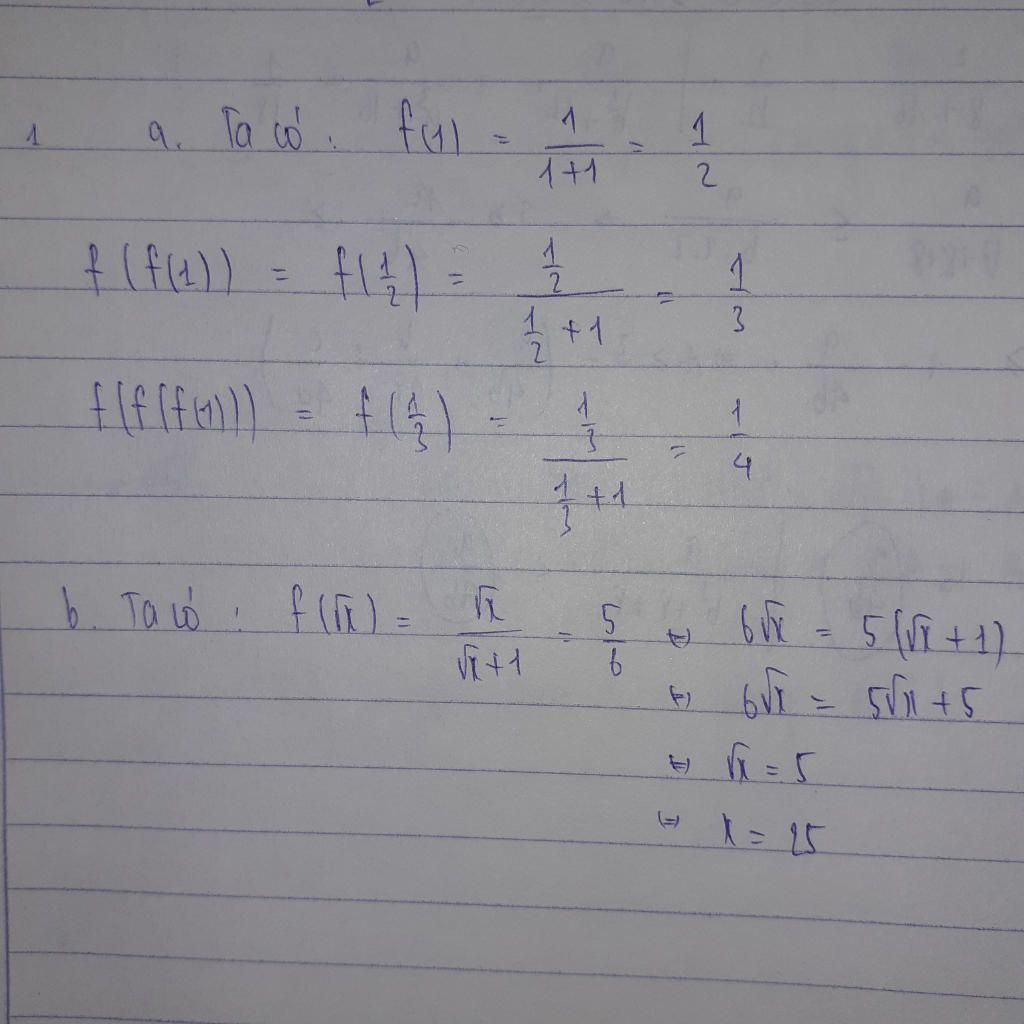 1 a. Ta có : f(1) = \frac{1}{1+1} = \frac{1}{2}
f(f(1)) = f(\frac{1}{2}) = \frac{\frac{1}{2}}{\frac{1}{2}+1} = \frac{1}{3}
f(f(f(1))) = f(\frac{1}{3}) = \frac{\frac{1}{3}}{\frac{1}{3}+1} = \frac{1}{4}
b. Ta có : f(√x) = \frac{√x}{√x+1} = \frac{5}{6} ⇔ 6√x = 5(√x + 1)
⇔ 6√x = 5√x + 5
⇔ √x = 5
⇔ x = 25